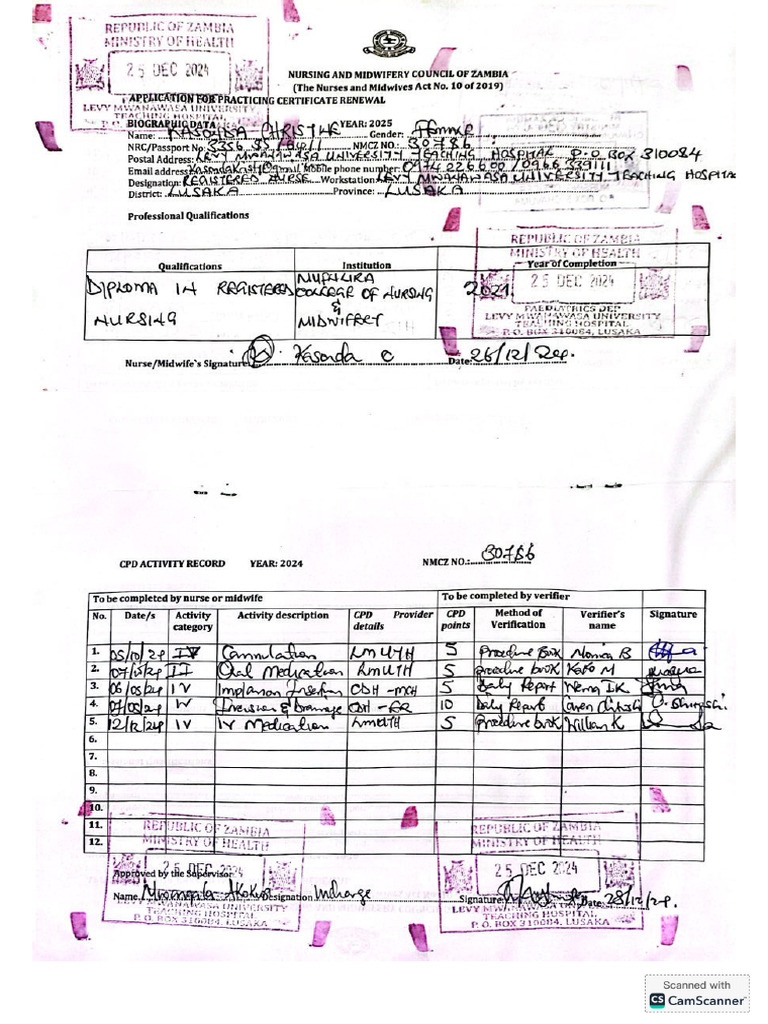 REPUBLIC OF ZAMBIA
MINISTRY OF HEALTH
25 DEC 2024
LEVY MWANAWASA UNIVERSITY
TEACHING HOSPITAL
NURSING AND MIDWIFERY COUNCIL OF ZAMBIA
(The Nurses and Midwives Act No. 10 of 2019)
APPLICATION FOR PRACTICING CERTIFICATE RENEWAL
BIOGRAPHIC DATA YEAR: 2025
Name: KASONDA CHRISTINE Gender: Female
NRC/Passport No: NMCZ NO.: 30786
Postal Address: LEVY MWANAWASA UNIVERSITY TEACHING HOSPITAL P.O BOX 310084
Email address Mobile phone number:
Designation: REGISTERED NURSE Workstation: LEVY MWANAWASA UNIVERSITY TEACHING HOSPITAL
District: LUSAKA Province: LUSAKA
Professional Qualifications
REPUBLIC OF ZAMBIA
MINISTRY OF HEALTH
25 DEC 2024
PAEDIATRICS DEP
LEVY MWANAWASA UNIVERSITY
TEACHING HOSPITAL
P. O. BOX 310084, LUSAKA
Qualifications Institution Year of Completion
DIPLOMA IN REGISTERED NURSING MUFULIRA COLLEGE OF NURSING & MIDWIFERY 2021
Nurse/Midwife's Signature: Kasonda C Date: 26/12/
CPD ACTIVITY RECORD YEAR: 2024 NMCZ NO.: 30786
To be completed by nurse or midwife To be completed by verifier
No. Date/s Activity category Activity description CPD Provider details CPD points Method of Verification Verifier's name Signature
1. 05/10/24 IV Cannulation LMUTH 5 Procedure Book Monica B
2. 07/10/24 II Oral Medication LMUTH 5 procedure book M
3. 06/05/24 IV Implanon Insertion CDH - MCH 5 Daily Report
4. 07/08/24 IV Incision & Drainage CDH - 10 Daily Report
5. 12/12/24 IV IV Medication LMUTH 5 Procedure book William K
6.
7.
8.
9.
10.
11.
12.
REPUBLIC OF ZAMBIA
MINISTRY OF HEALTH
25 DEC 2024
Approved by the Supervisor
Name Designation Incharge
MWANAWASA UNIVERSITY
TEACHING HOSPITAL
P. O. BOX 310084, LUSAKA
REPUBLIC OF ZAMBIA
MINISTRY OF HEALTH
25 DEC 2024
Signature: Date: 28/12/24
LEVY MWANAWASA
TEACHING HOSPITAL
P. O. BOX 310084, LUSAKA
Scanned with
CS CamScanner